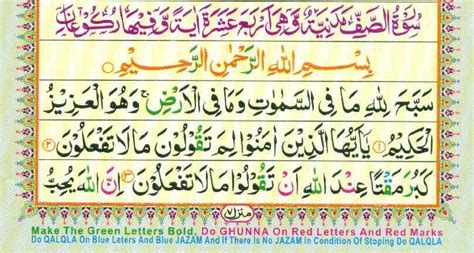 سُوْرَةُ الصَّفِّ مَدَنِيَّةٌ وَّهِىَ اَرْبَعَ عَشْرَةَ اٰيَةً وَّفِيْهَا رُكُوْعَانِ
بِسْمِ اللّٰهِ الرَّحْمٰنِ الرَّحِيْمِ
سَبَّحَ لِلّٰهِ مَا فِى السَّمٰوٰتِ وَمَا فِى الْاَرْضِ ۚ وَهُوَ الْعَزِيْزُ
الْحَكِيْمُ ۝۱ يٰۤاَيُّهَا الَّذِيْنَ اٰمَنُوْا لِمَ تَقُوْلُوْنَ مَا لَا تَفْعَلُوْنَ ۝۲
كَبُرَ مَقْتًا عِنْدَ اللّٰهِ اَنْ تَقُوْلُوْا مَا لَا تَفْعَلُوْنَ ۝۳ اِنَّ اللّٰهَ يُحِبُّ
منزل ۷
Make The Green Letters Bold, Do GHUNNA On Red Letters And Red Marks
Do QALQLA On Blue Leters And Blue JAZAM And If There Is No JAZAM In Condition Of Stoping Do QALQLA